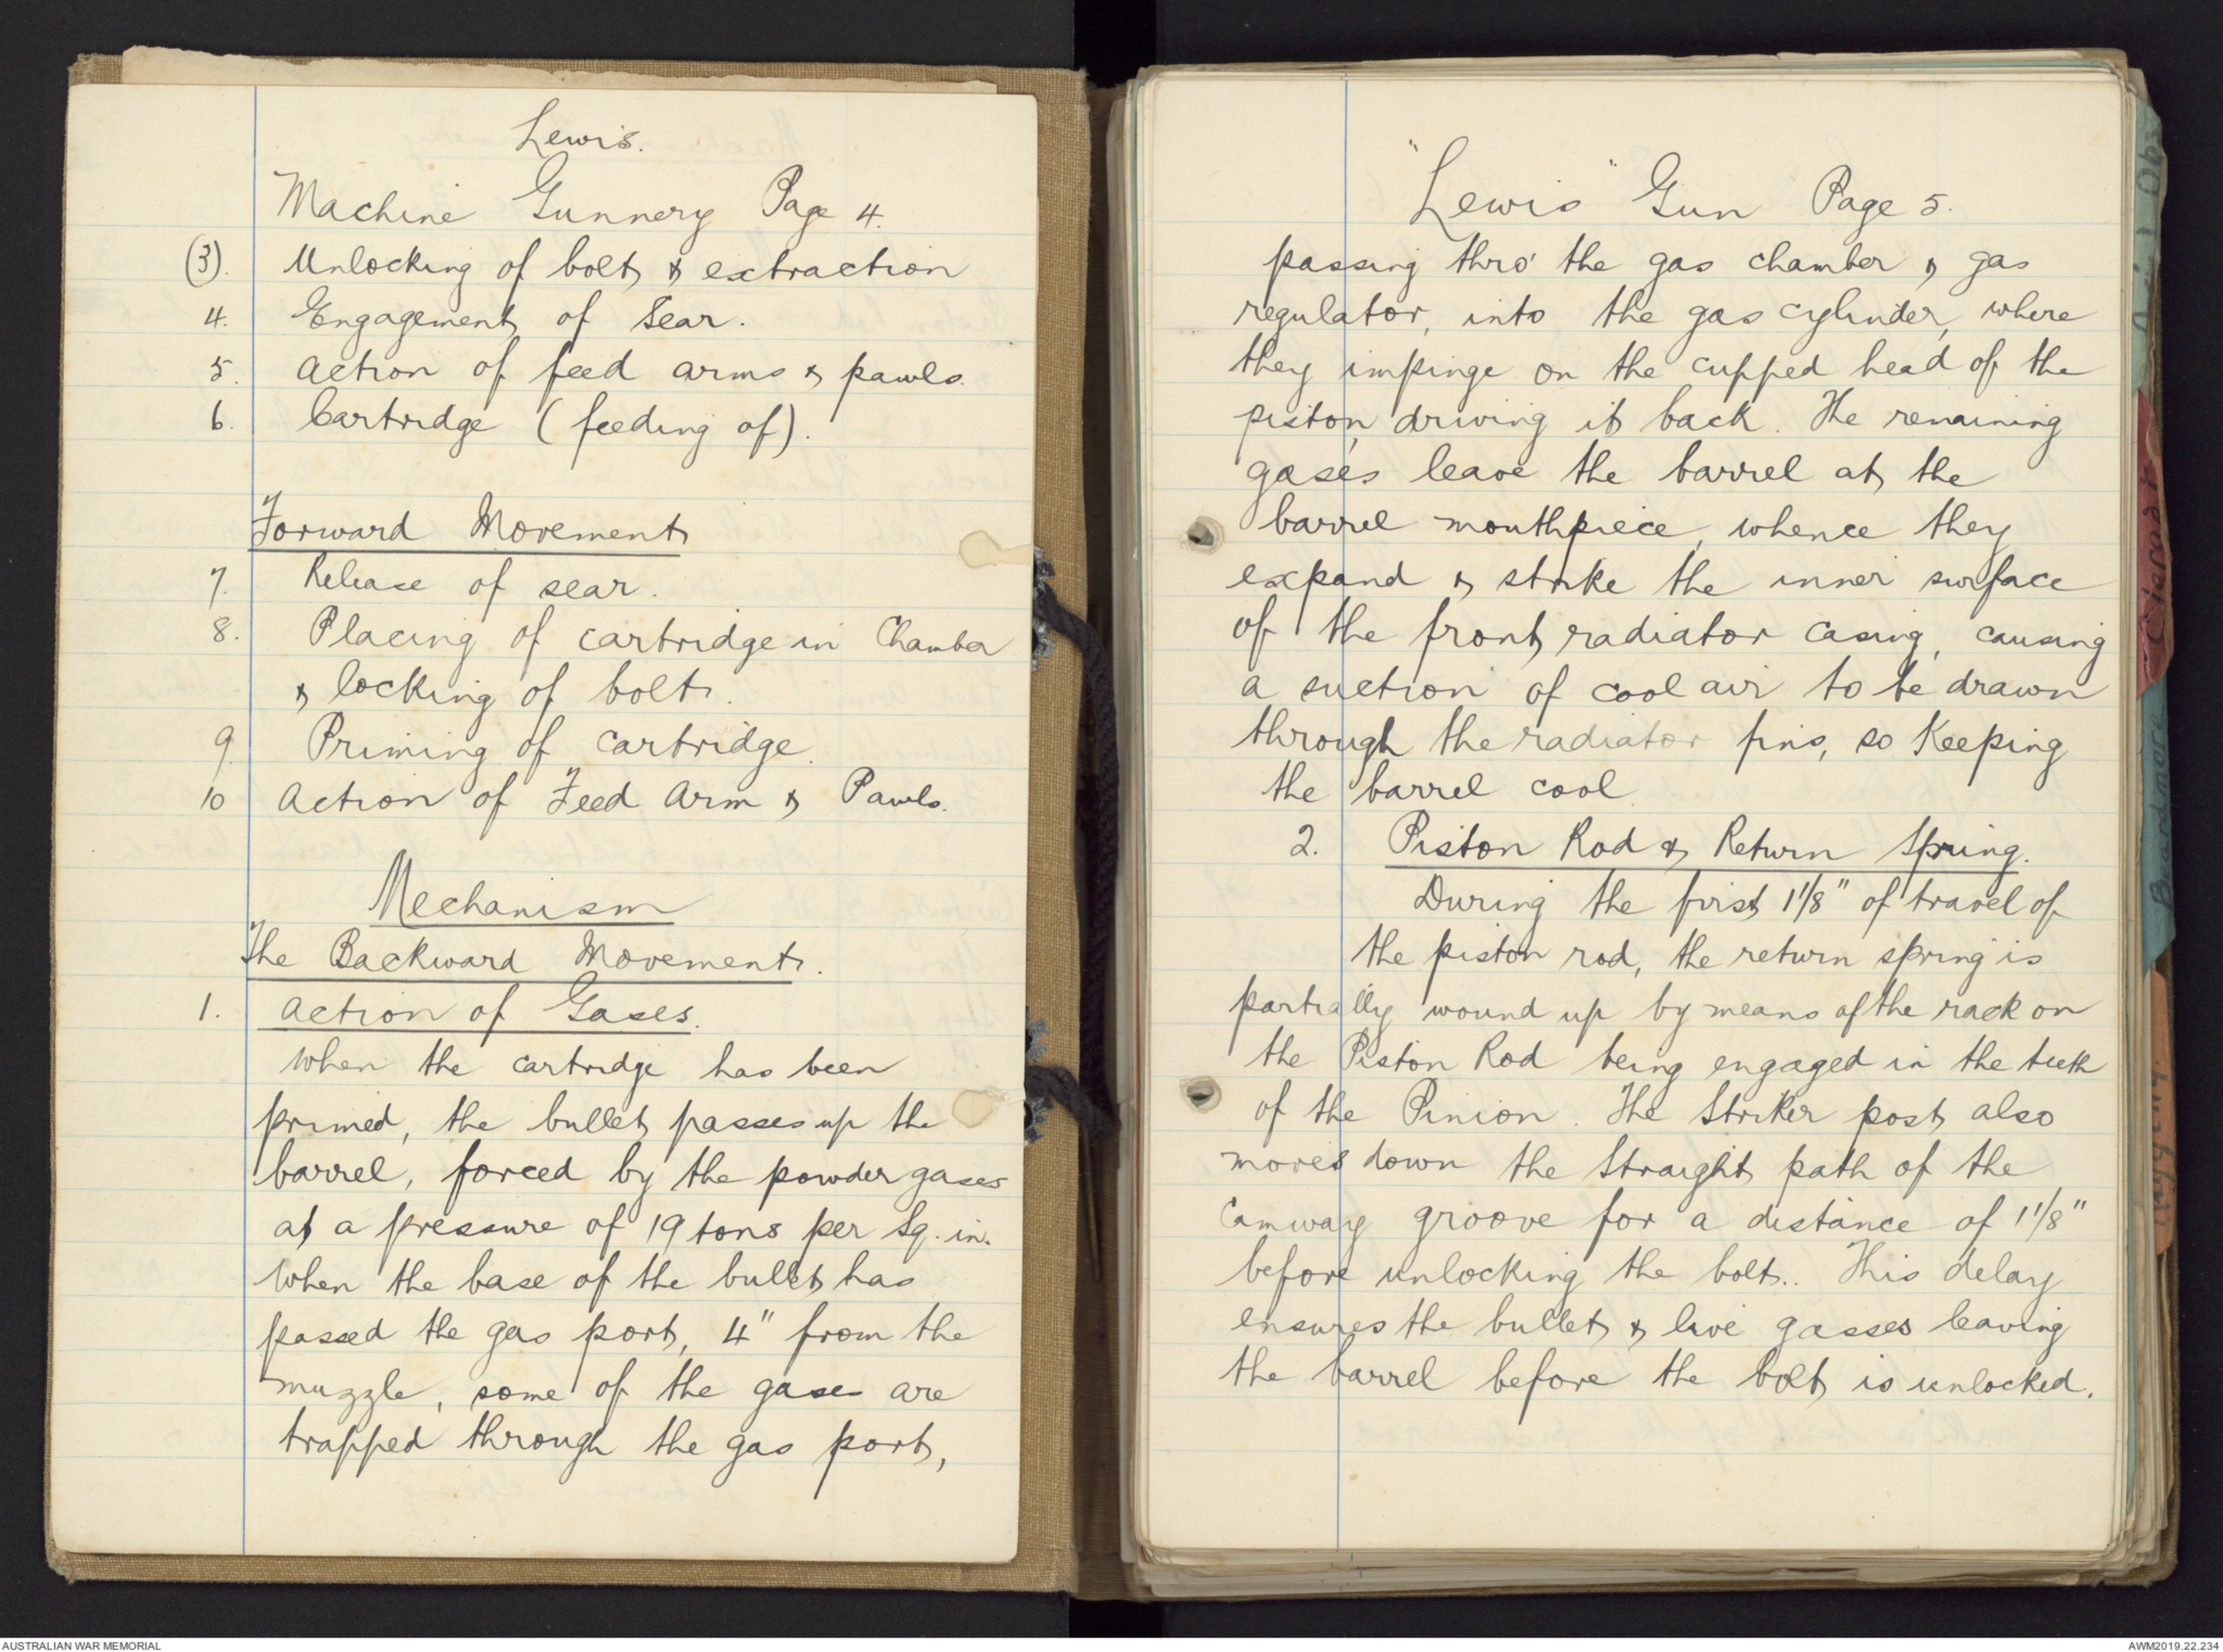 Lewis.
Machine Gunnery Page 4.
(3). Unlocking of bolt & extraction
4. Engagement of Sear.
5. Action of feed arms & pawls.
6. Cartridge (feeding of).
Forward Movement
7. Release of sear.
8. Placing of cartridge in Chamber
& locking of bolt.
9. Priming of cartridge.
10 Action of Feed Arm & Pawls.
Mechanism
The Backward Movement.
1. Action of Gases.
When the cartridge has been
primed, the bullet passes up the
barrel, forced by the powder gases
at a pressure of 19 tons per Sq. in.
When the base of the bullet has
passed the gas port, 4" from the
muzzle, some of the gases are
trapped through the gas port,
"Lewis" Gun Page 5.
passing thro' the gas chamber & gas
regulator, into the gas cylinder, where
they impinge on the cupped head of the
piston, driving it back. The remaining
gases leave the barrel at the
barrel mouthpiece, whence they
expand & strike the inner surface
of the front radiator casing, causing
a suction of cool air to be drawn
through the radiator fins, so Keeping
the barrel cool
2. Piston Rod & Return Spring.
During the first 1 1/8" of travel of
the piston rod, the return spring is
partially wound up by means of the rack on
the Piston Rod being engaged in the teeth
of the Pinion. The Striker post also
moves down the Straight path of the
Camway groove for a distance of 1 1/8"
before unlocking the bolt.. This delay
ensures the bullet & live gasses leaving
the barrel before the bolt is unlocked.
AUSTRALIAN WAR MEMORIAL
AWM2019.22.234